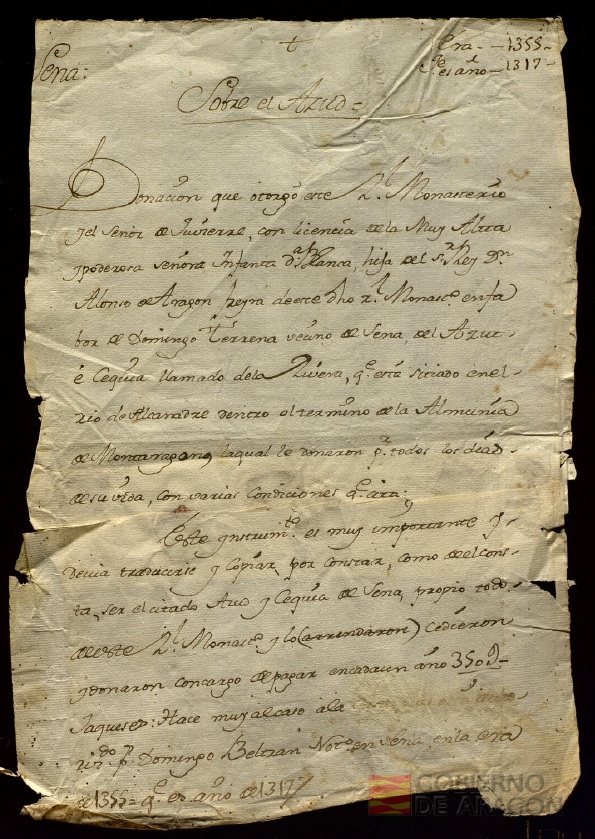 +
Era - 1355 -
Sena:
q.e es año - 1317 -
Sobre el Azud =
Donacion que otorgó este R.l Monasterio
y el Señor de Gutierre, con licencia de la Muy Alta
y poderosa señora Infanta d.a Blanca, hija del s.r Rey D.n
Alonso de Aragon y Reyna de este dho R.l Monast.o en fa
bor de Domingo Térrena vecino de Sena, del Azut -
é Cequia llamado de la Rivera, q.e está sitiado en el -
rio de Alcanadre dentro el termino de la Almunia
de Montaragon, la qual le donaron p.r todos los dias
de su vida, con varias condiciones q.e
Este ynstrum.to es muy importante y
devia traducirse y copiar, por constar, como de el cons-
ta, ser el citado Azud y Cequia de Sena, propio todo
de este R.l Monast.o y lo (arrendaron) cedieron
y donaron con cargo de pagar en cada un año 350 s.
Jaqueses: Hace muy al caso á la
p.r Domingo Beltran Not.o en Sena, en la era
de 1355 = q.e es año de 1317
GOBIERNO
DE ARAGON